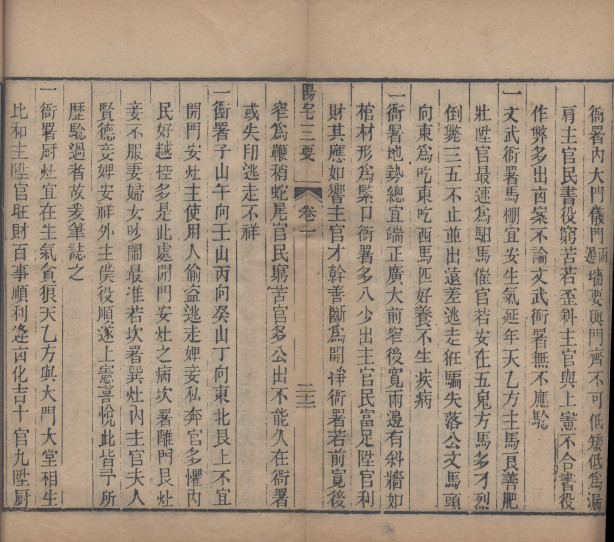 衙署內大門儀門兩邊墻要與門齊不可低矮低爲漏
肩主官民書役窮苦若歪斜主官與上憲不合書役
作弊多出凶案不論文武衙署無不應驗
一文武衙署馬棚宜安生氣延年天乙方主馬良善肥
壯陞官最速爲駟馬催官若安在五鬼方馬多才烈
倒斃三五不止並出遠差逃走狂騙失落公文馬頭
向東爲吃東吃西馬匹好養不生疾病
一衙署地勢總宜端正廣大前窄後寬兩邊有斜墻如
棺材形爲緊口衙署多入少出主官民富足陞官利
財其應如響主官才幹善斷爲開衙署若前寬後
陽宅三要 卷一 二十二
窄爲鞭稍蛇尾官民窮苦官多公出不能久在衙署
或失印逃走不祥
一衙署子山午向壬山丙向癸山丁向東北艮上不宜
開門安灶主使用人偷盜逃走婢妾私奔官多懼內
民好越控多是此處開門安灶之病坎署離門艮灶
妾不服妻婦女吵鬧最准若坎署巽灶內主官夫人
賢德妾婢安祥外主僕役順遂上憲喜悅此皆予所
歷驗過者故爰筆誌之
一衙署厨灶宜在生氣貪狼天乙方與大門大堂相生
比和主陞官旺財百事順利逢凶化吉十官九陞厨